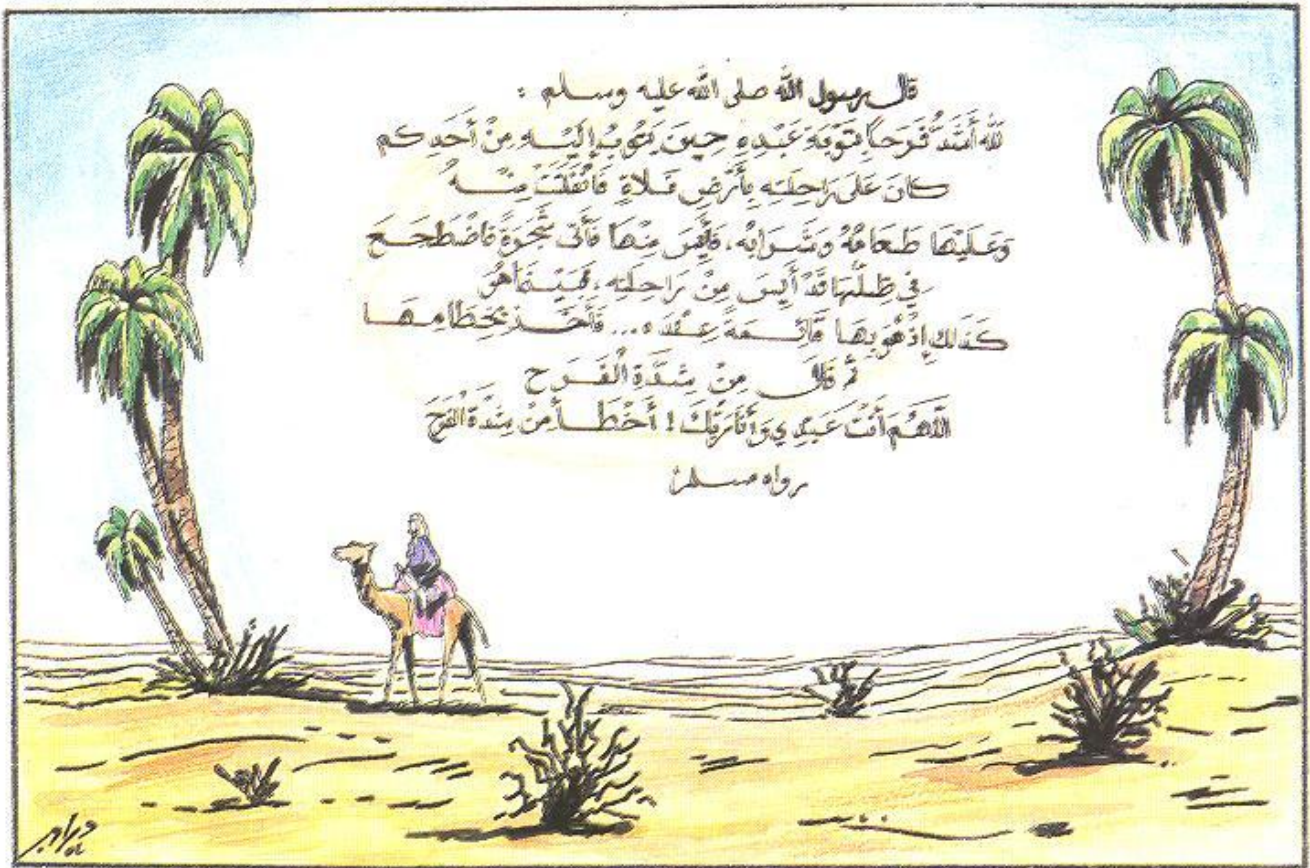 قال رسول الله صلى الله عليه وسلم :
لله أشد فرحا بتوبة عبده حين يتوب إليه من أحدكم
كان على راحلته بأرض فلاة فانفلتت منه
وعليها طعامه وشرابه، فأيس منها فأتى شجرة فاضطجع
في ظلها قد أيس من راحلته، فبينما هو
كذلك إذ هو بها قائمة عنده ... فأخذ بخطامها
ثم قال من شدة الفرح
اللهم أنت عبدي وأنا ربك ! أخطأ من شدة الفرح
رواه مسلم